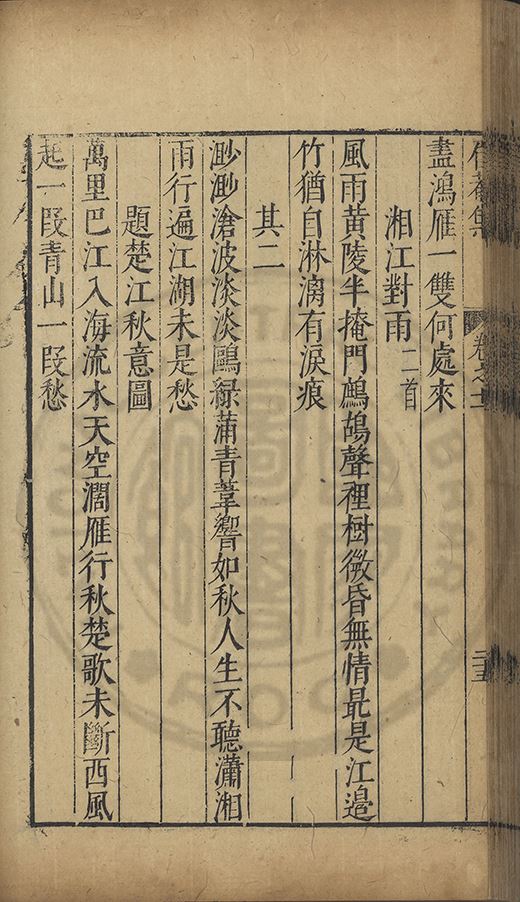 盡鴻雁一雙何處來
湘江對雨二首
風雨黃陵半掩門鷓鴣聲裡樹微昏無情最是江邉
竹猶自淋漓有淚痕
其二
渺渺滄波淡淡鷗綠蒲青葦響如秋人生不聽瀟湘
雨行遍江湖未是愁
題楚江秋意圖
萬里巴江入海流水天空濶雁行秋楚歌未斷西風
起一叚青山一叚愁